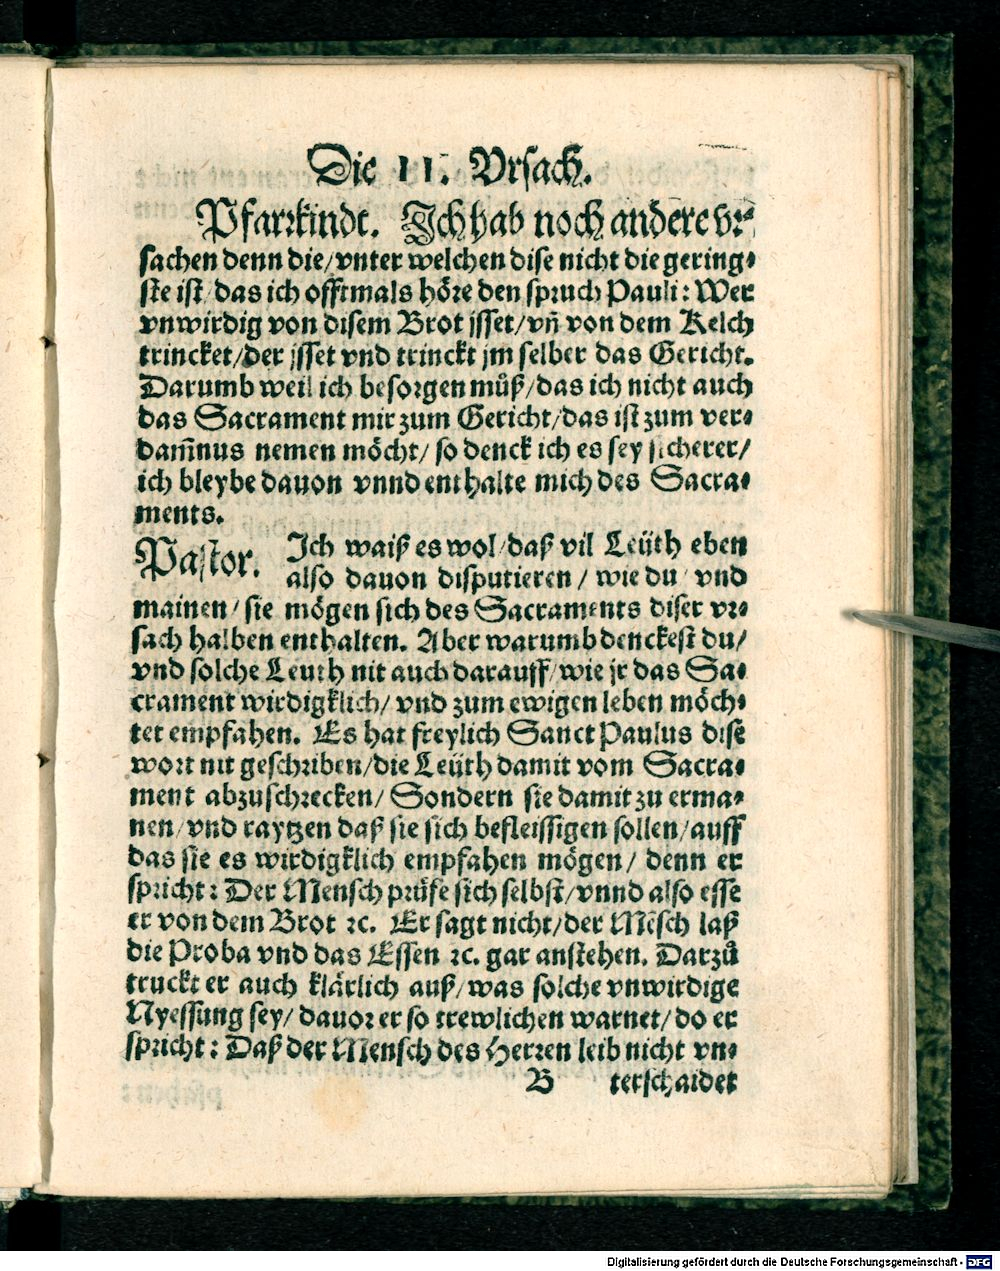 Die II. Vrsach.
Pfarrkindt. Ich hab noch andere vr-
sachen denn die/vnter welchen dise nicht die gering-
ste ist/das ich offtmals höre den spruch Pauli: Wer
vnwirdig von disem Brot jsset/vñ von dem Kelch
trincket/der jsset vnd trinckt jm selber das Gericht.
Darumb weil ich besorgen můß/das ich nicht auch
das Sacrament mir zum Gericht/das ist zum ver-
dam̃nus nemen möcht/ so denck ich es sey sicherer/
ich bleybe dauon vnnd enthalte mich des Sacra-
ments.
Pastor. Ich waiß es wol/daß vil Leüth eben
also dauon disputieren/ wie du/ vnd
mainen/ sie mögen sich des Sacraments diser vr-
sach halben enthalten. Aber warumb denckest du/
vnd solche Leuth nit auch darauff/wie jr das Sa-
crament wirdigklich/ vnd zum ewigen leben möch-
tet empfahen. Es hat freylich Sanct Paulus dise
wort nit geschriben/die Leüth damit vom Sacra-
ment abzuschrecken/ Sondern sie damit zu erma-
nen/vnd raytzen daß sie sich befleissigen sollen/auff
das sie es wirdigklich empfahen mögen/ denn er
spricht: Der Mensch prüfe sich selbst/vnnd also esse
er von dem Brot ꝛc. Er sagt nicht/der Mẽsch laß
die Proba vnd das Essen ꝛc. gar anstehen. Darzů
truckt er auch klärlich auß/was solche vnwirdige
Nyessung sey/ dauor er so trewlichen warnet/do er
spricht: Daß der Mensch des Herren leib nicht vn-
B terschaidet
Digitalisierung gefördert durch die Deutsche Forschungsgemeinschaft - DFG